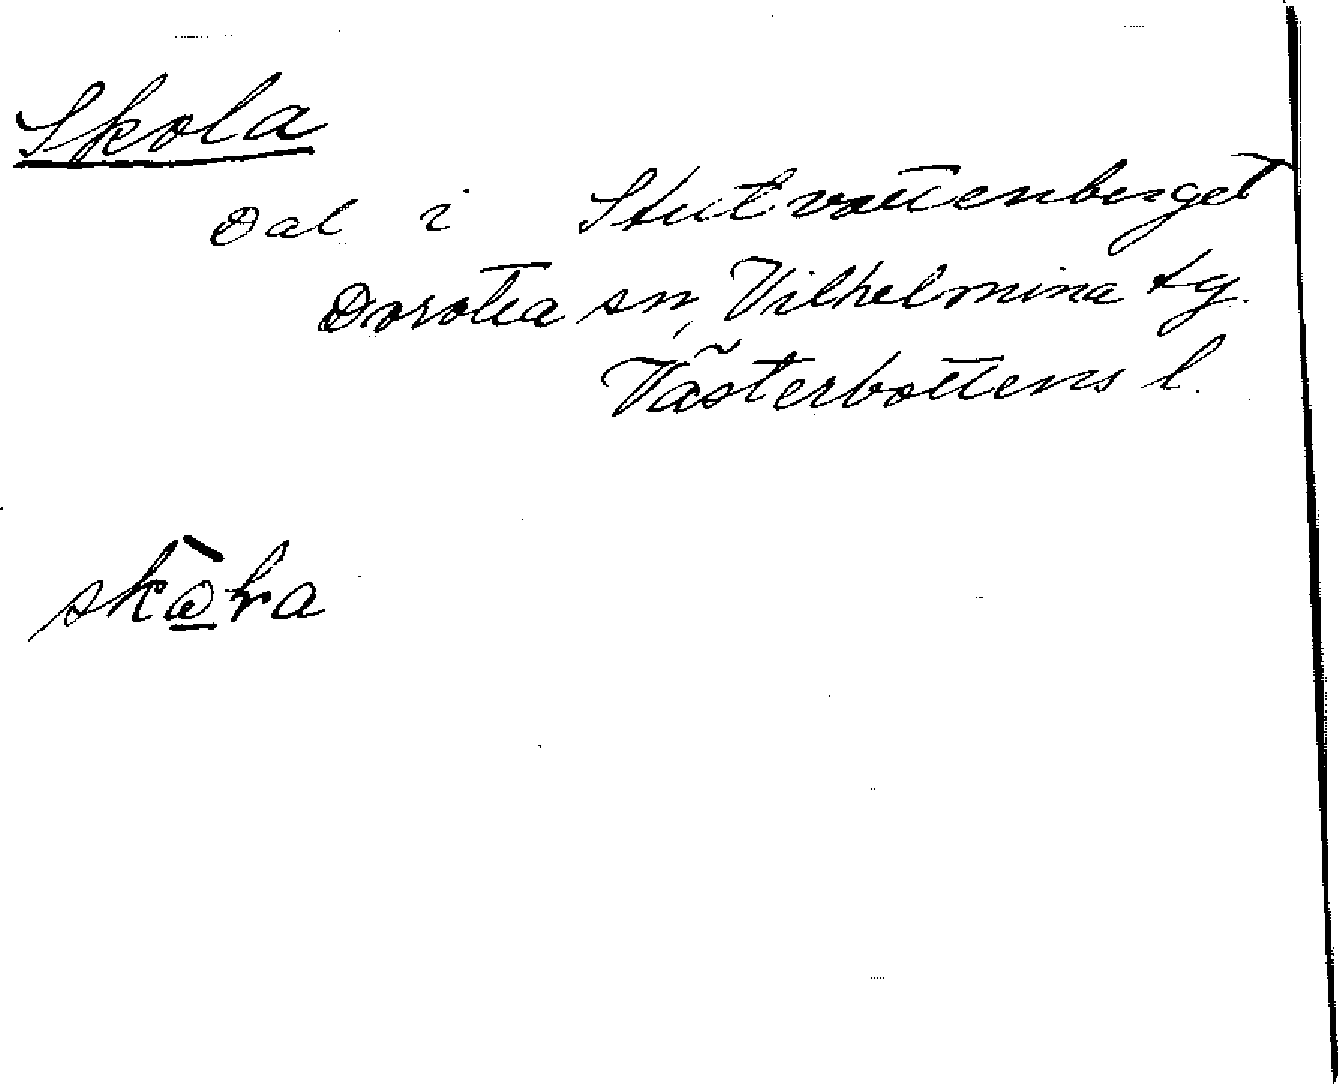 Skola
Dal i Stutvattenberget
Dorotea sn, Vilhelmina tg.
Västerbottens l.